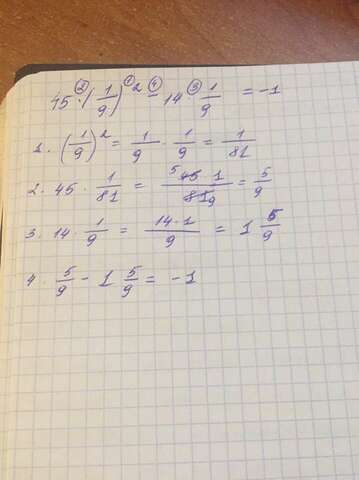 45 ·② (1/9)^①2 -④ 14 ·③ 1/9 = -1
1. (1/9)^2 = 1/9 · 1/9 = 1/81
2. 45 · 1/81 = 5 45 · 1 / 81 9 = 5/9
3. 14 · 1/9 = 14·1/9 = 1 5/9
4. 5/9 - 1 5/9 = -1